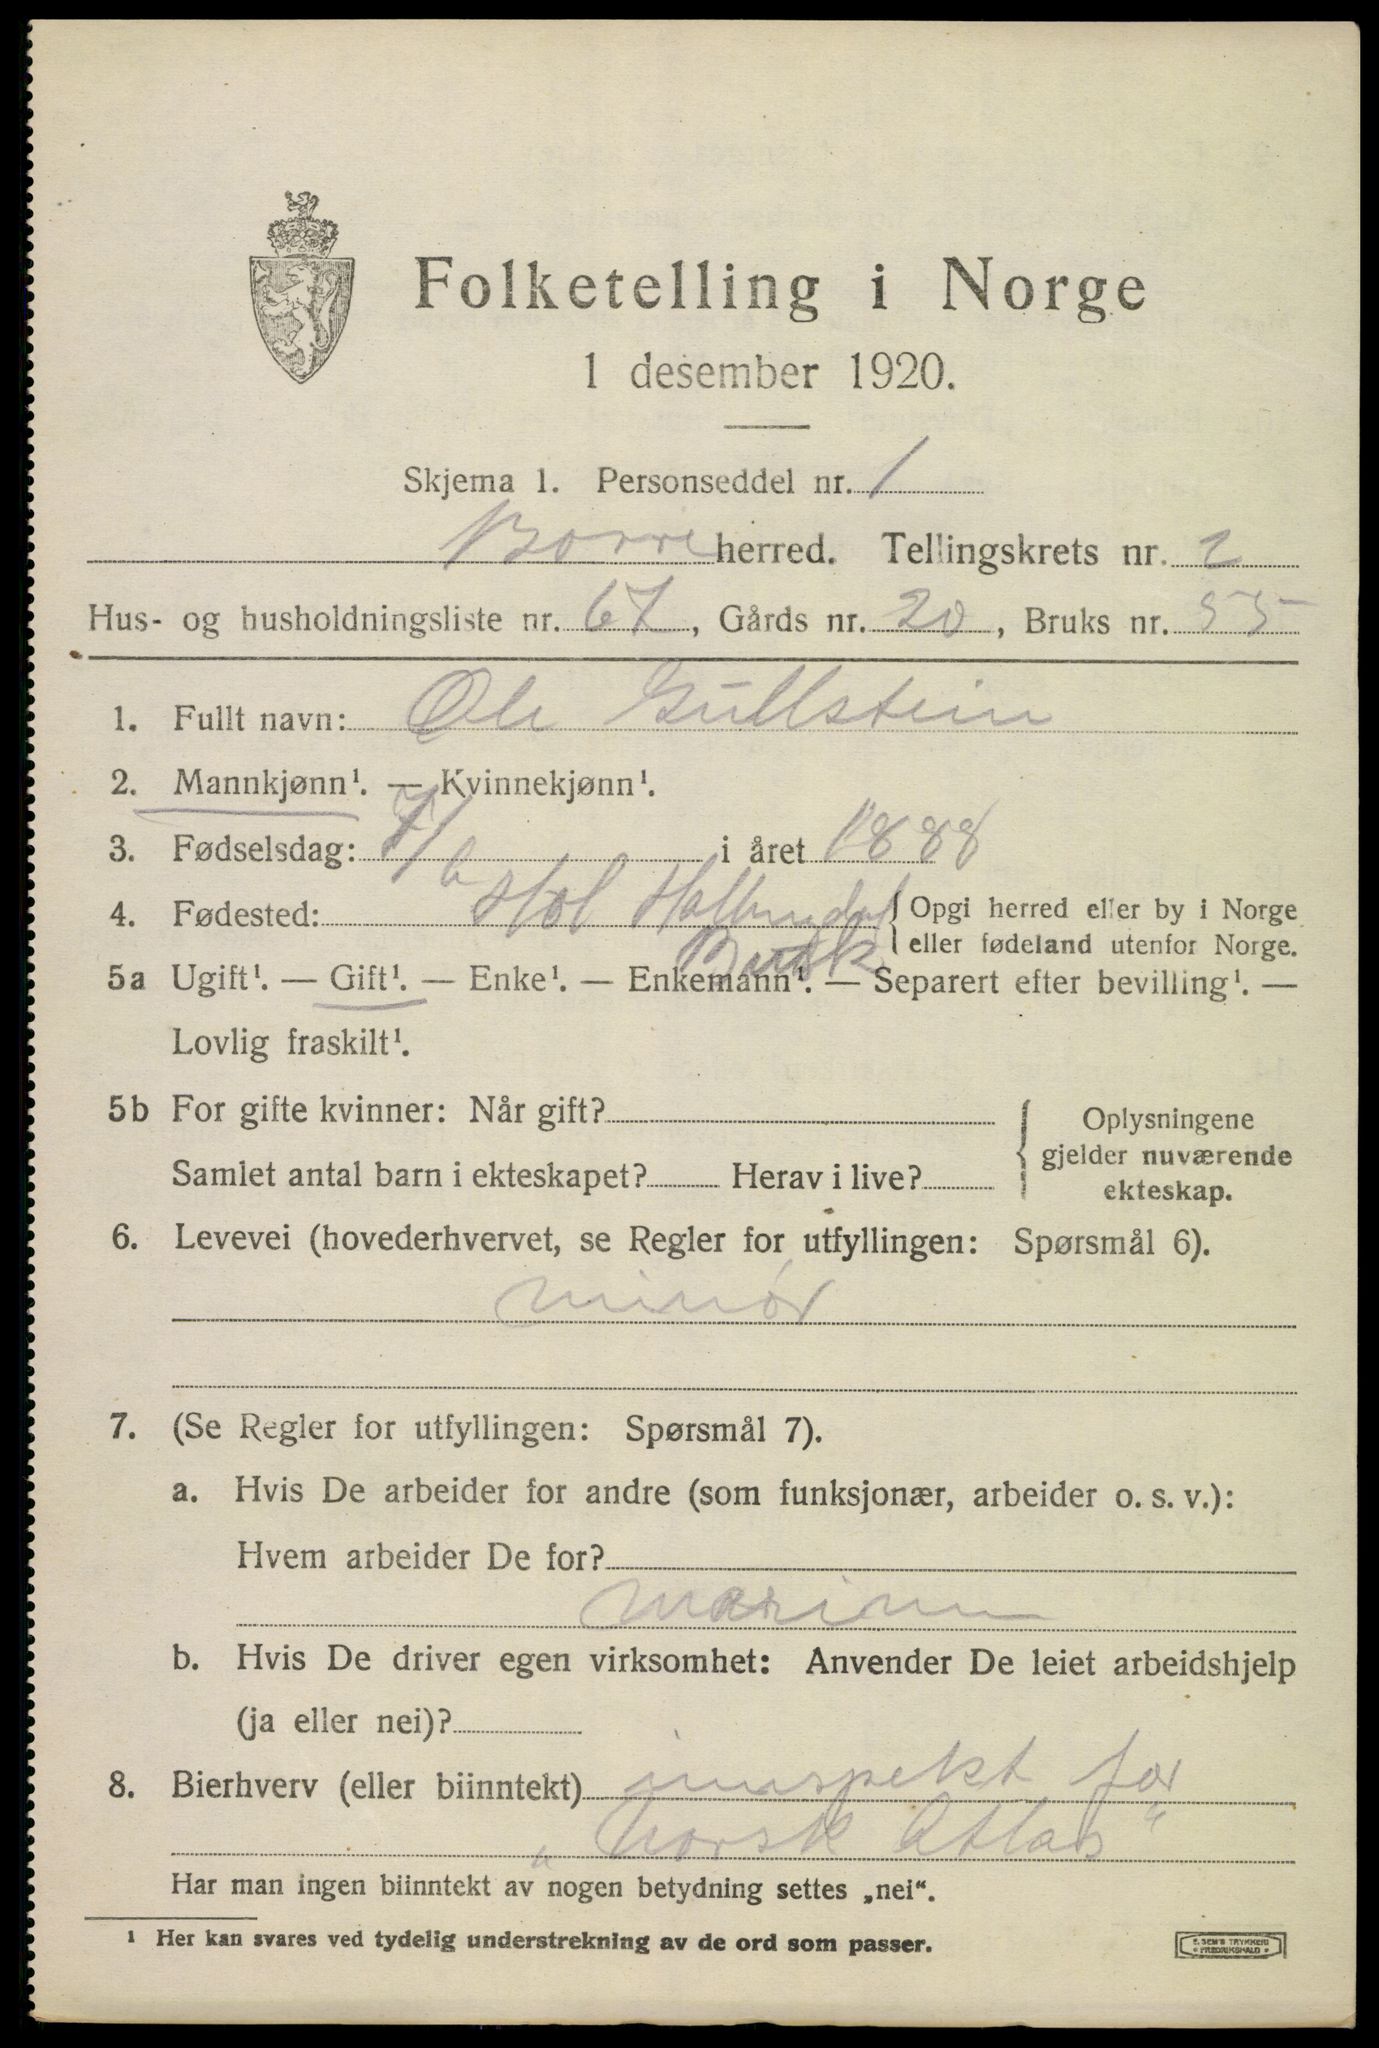 Folketelling i Norge
1 desember 1920.
Skjema 1. Personseddel nr. 1
Borre herred. Tellingskrets nr. 2
Hus- og husholdningsliste nr. 67, Gårds nr. 20, Bruks nr. 55
1. Fullt navn: Ole Gullstein
2. Mannkjønn¹. — Kvinnekjønn¹.
3. Fødselsdag: 7/6 i året 1888
4. Fødested: Hol Hallingdal { Opgi herred eller by i Norge
Busk eller fødeland utenfor Norge.
5a Ugift¹. — Gift¹. — Enke¹. — Enkemann¹. — Separert efter bevilling¹. —
Lovlig fraskilt¹.
5b For gifte kvinner: Når gift? { Oplysningene
gjelder nuværende
Samlet antal barn i ekteskapet? Herav i live? ekteskap.
6. Levevei (hovederhvervet, se Regler for utfyllingen: Spørsmål 6).
minør
7. (Se Regler for utfyllingen: Spørsmål 7).
a. Hvis De arbeider for andre (som funksjonær, arbeider o. s. v.):
Hvem arbeider De for?
marinen
b. Hvis De driver egen virksomhet: Anvender De leiet arbeidshjelp
(ja eller nei)?
8. Bierhverv (eller biinntekt) innspekt for
„Norsk Atlas“
Har man ingen biinntekt av nogen betydning settes „nei“.
¹ Her kan svares ved tydelig understrekning av de ord som passer.
E. SEM'S TRYKKERI
* FREDRIKSHALD *